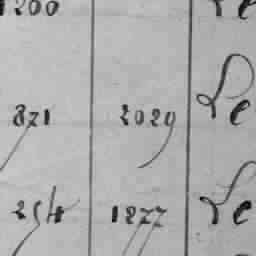 1200 Le
871 2029 Le
254 1277 Le